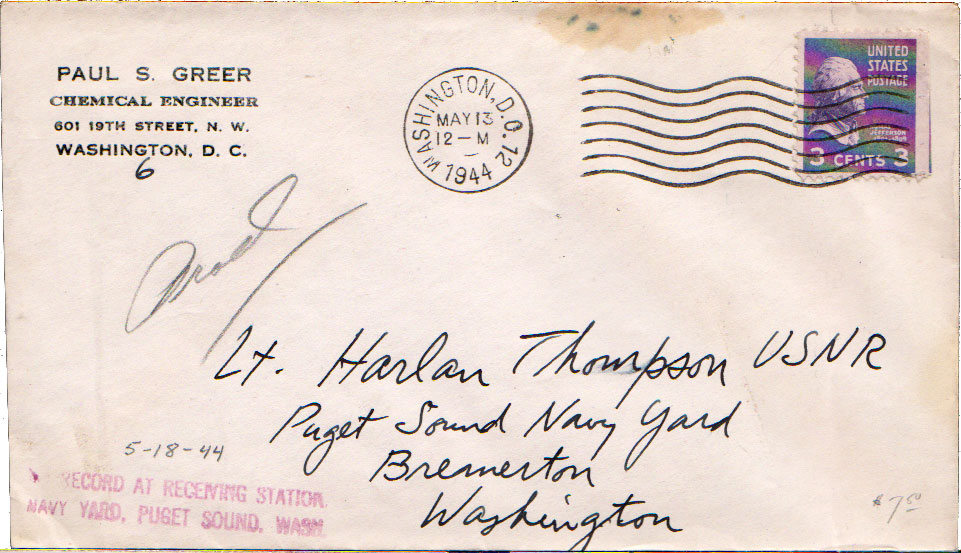 PAUL S. GREER
CHEMICAL ENGINEER
601 19TH STREET, N. W.
WASHINGTON, D. C.
6
WASHINGTON, D.C. 12
MAY 13
12-M
1944
UNITED
STATES
POSTAGE
JEFFERSON
3 CENTS 3
Lt. Harlan Thompson USNR
Puget Sound Navy Yard
Bremerton
Washington
5-18-44
RECORD AT RECEIVING STATION,
NAVY YARD, PUGET SOUND, WASH.
$7.50